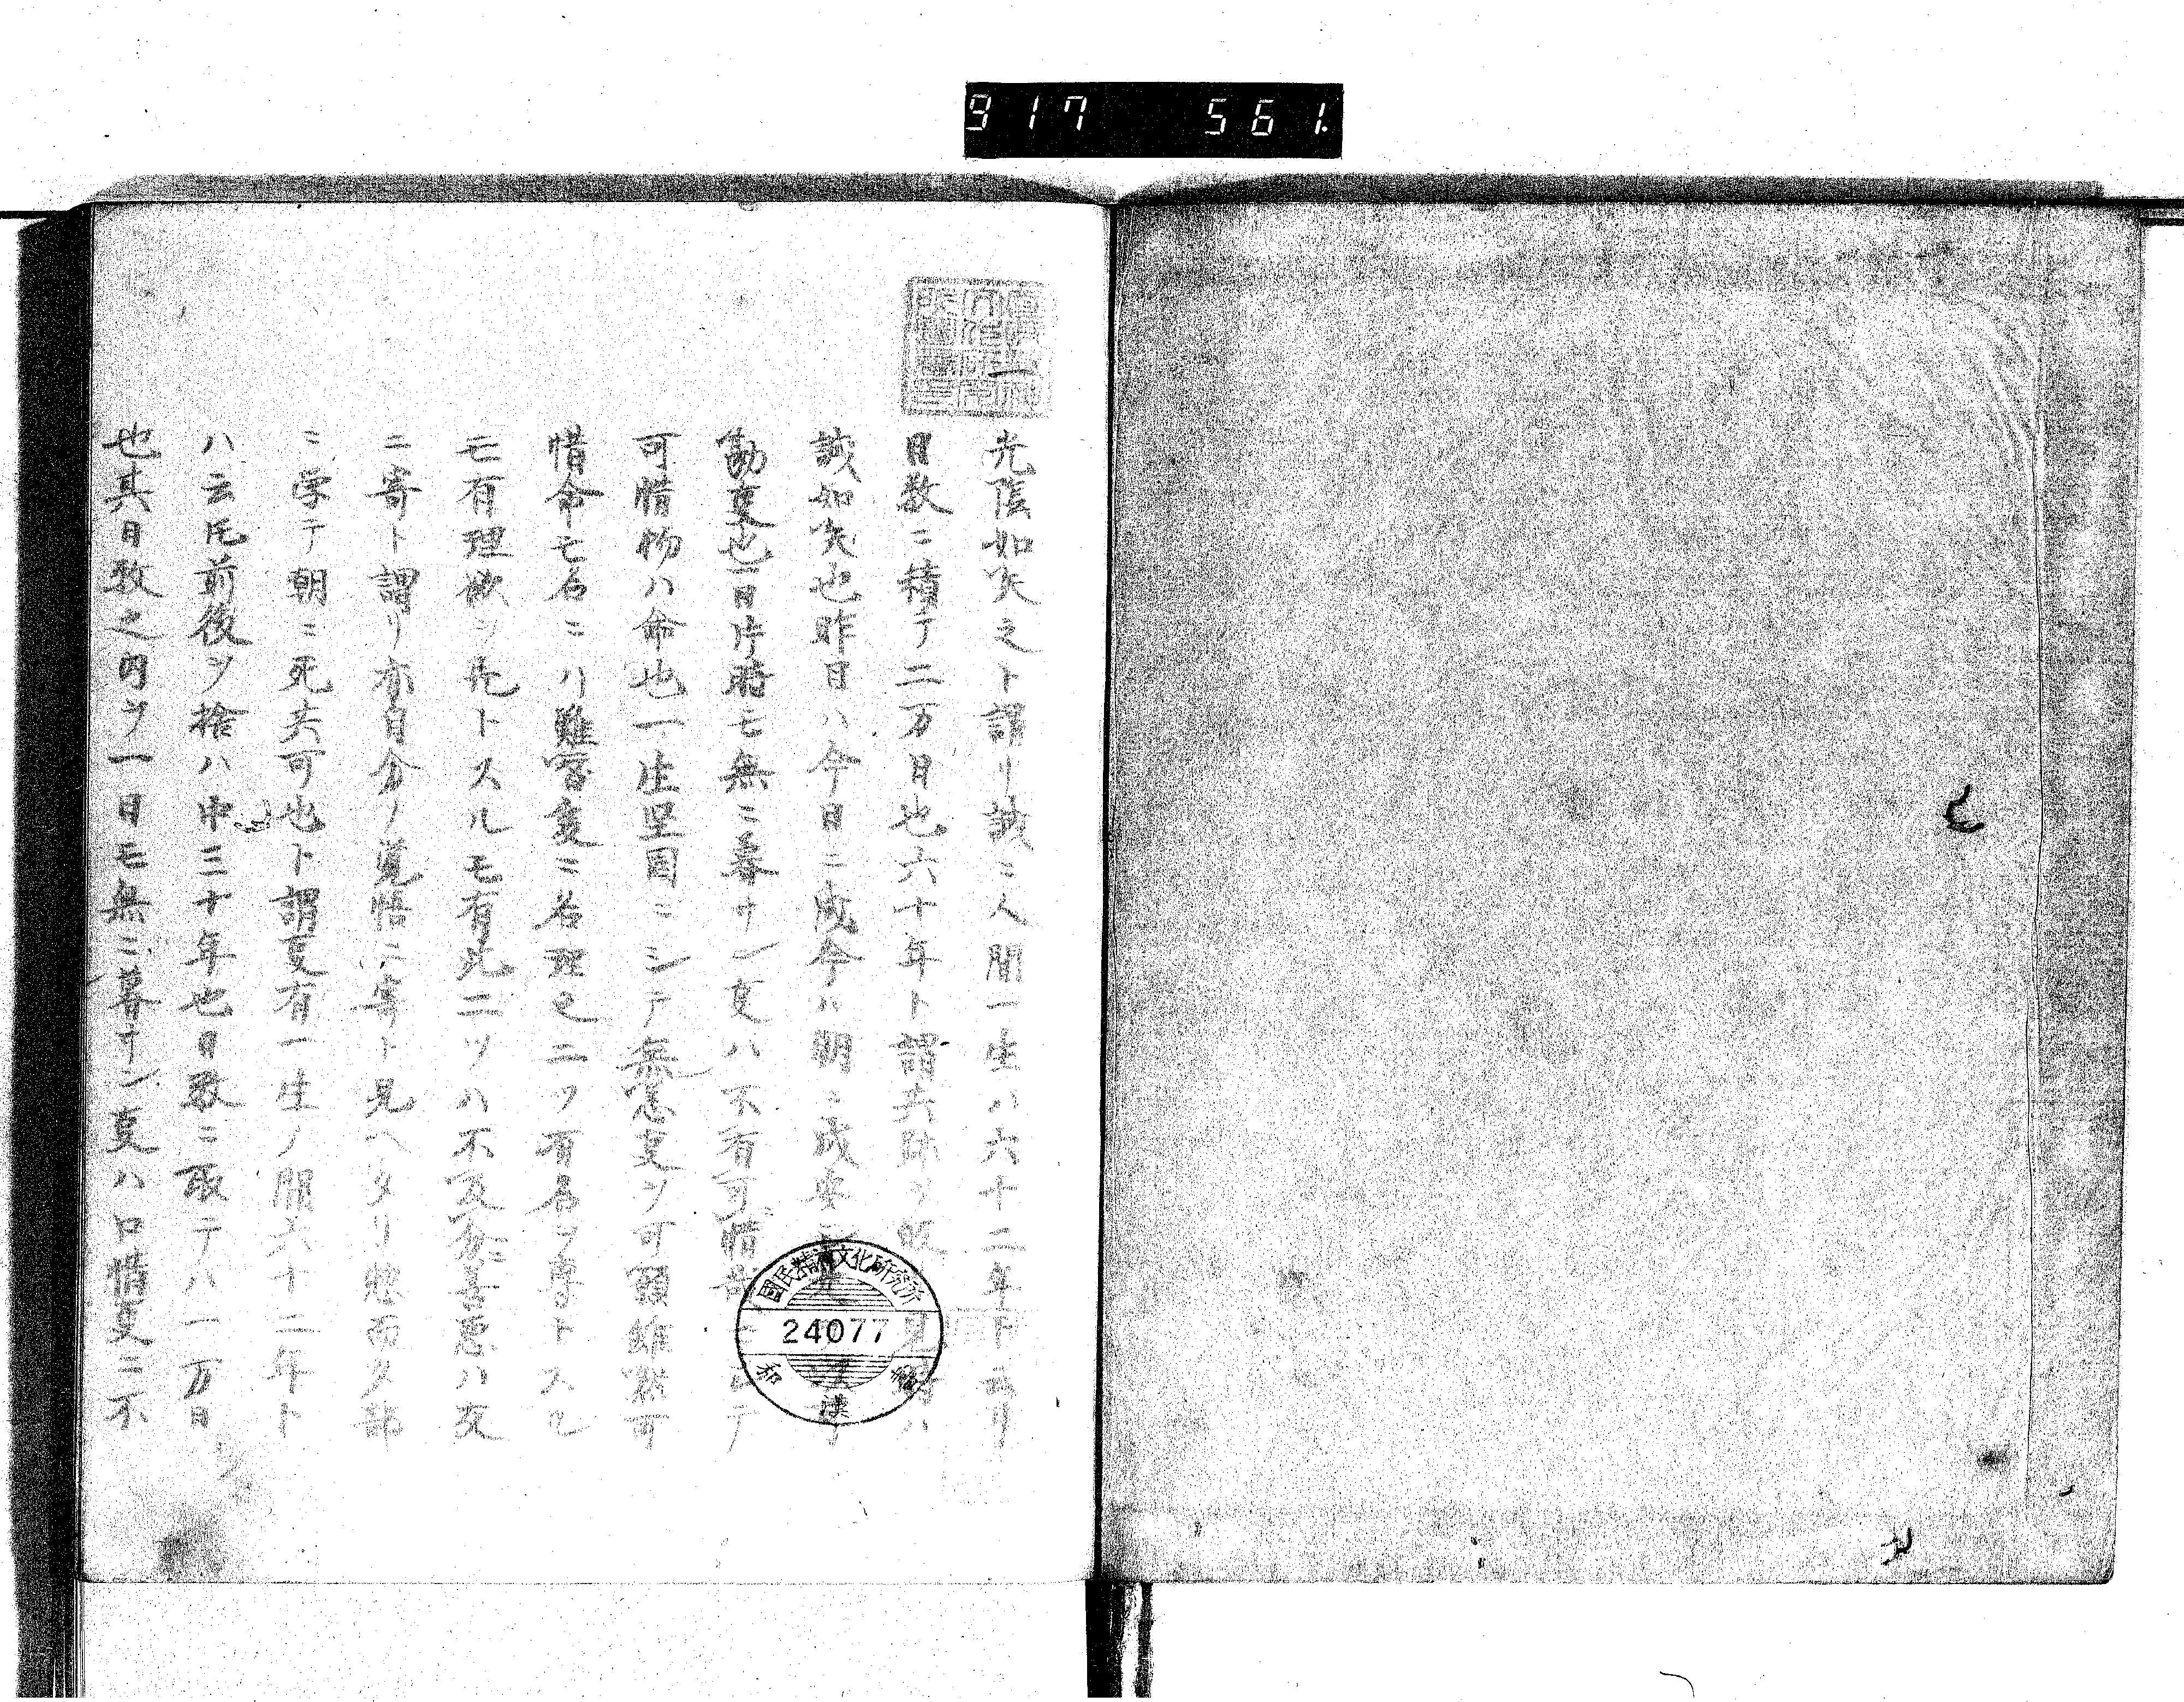 917 561.
一
光陰如矢之ト謂リ誠ニ人間一生ハ六十二年ト云リ
日数ニ積テ二万日也六十年ト謂共跡ヲ
誠如矢也昨日ハ今日ニ成今ハ明ニ成
勘夏也一日片時モ無ニ暮サン夏ハ不有可惜
可惜物ハ命也一生堅固ニシテ無恙夏ヲ可願雖然可
惜命モ名ニハ難替爰ニ名理之二ツ有名ヲ専トスル
モ有理欲ヲ先トスルモ有此二ツハ不及善悪ハ友
ニ寄ト謂リ亦自分ノ覚悟ニ寄ト見ヘタリ
ニ学テ朝ニ死共可也ト謂夏有一生ノ間六十二年ト
ハ云氏前後ヲ捨ハ中三十年也日数ニ取テハ一万日
也其日数之内ヲ一日モ無ニ暮サン夏ハ口惜夏ニ不
國民精神文化研究所
24077